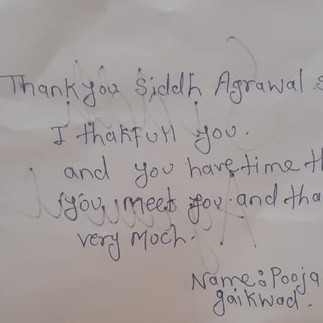 Thankyou Siddh Agrawal S
I thakfull you.
and you have time th
you meet you. and tha
very much.
Name: Pooja
gaikwad.